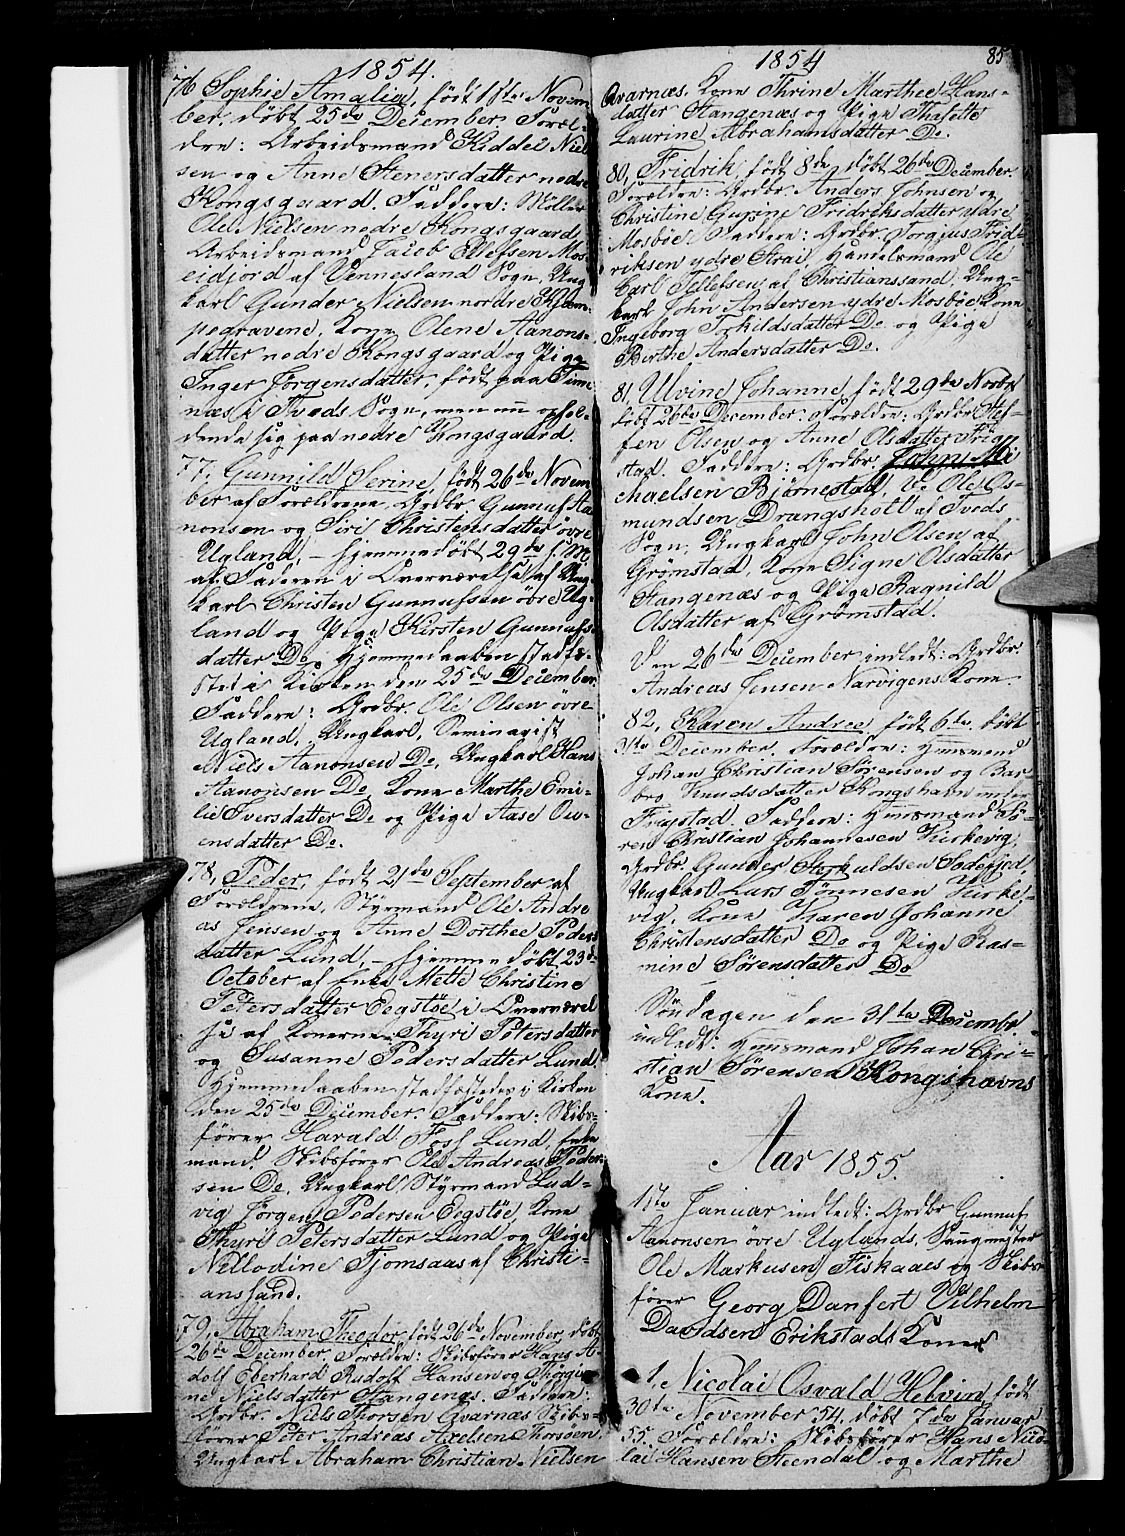 1854.
76 Sophie Amalia, født 1ste Novem-
ber, døbt 25de December. Foræl-
dre: Arbeidsmand Kiddel Niel-
sen og Anne Stenersdatter nedre
Kongsgaard. Faddere: Møller
Ole Nielsen nedre Kongsgaard,
Arbeidsmand Jacob Ellefsen Mos-
eidjord af Vennesland Sogn, Ung-
karl Gunder Nielsen nordre Kjem-
pegravene, Kone Olene Aanons-
datter nedre Kongsgaard og Pige
Inger Jørgensdatter, født paa Time-
næs i Tveds Sogn, men nu ophol-
dende sig paa nedre Kongsgaard.
77. Gunnild Serine, født 26de Novem-
ber af Forældrene, Grdbr. Gunnuf Aa-
nonsen og Siri Christensdatter øvre
Ugland, – hjemmedøbt 29de s. M.
af Faderen i Overværelse af Ung-
karl Christen Gunnufsen øvre Ug-
land og Pige Kirsten Gunnufs-
datter Do. Hjemmedaaben stadfæ-
stet i Kirken den 25de December.
Faddere: Grdbr. Ole Olsen øvre
Ugland, Ungkarl, Seminarist
Niels Aanonsen Do, Ungkarl Hans
Aanonsen Do, Kone Marthe Emi-
lie Iversdatter Do og Pige Aase Ou-
ensdatter Do.
78, Peder, født 21de September af
Forældrene, Styrmand Ole Andre-
as Jensen og Anne Dorthee Peders-
datter Lund, – hjemmedøbt 23de
October af Enke Mette Christine
Petersdatter Eegstøe i Overværel-
se af Konerne Thyri Petersdatter
og Susanne Pedersdatter Lund.
Hjemmedaaben stadfæstedes i Kirken
den 25de December. Faddere: Skibs-
fører Harald Foss Lund, Enke-
mand, Skibsfører Ole Andreas Peder-
sen Do, Ungkarl, Styrmand Lud-
vig Jørgen Pedersen Eegstøe, Kone
Thyri Petersdatter Lund og Pige
Nillodine Tjomsaas af Christi-
anssand.
79, Abraham Theodor, født 26de November, døbt
26de December. Forældre: Skibsfører Hans A-
dolf Eberhard Rudolf Hansen og Thorgi-
ne Nielsdatter Stangenæs. Faddere:
Grdbr. Niels Thorsen Qvarnæs, Skibs-
fører Peter Andreas Axelsen Thorsøen,
Ungkarl Abraham Christian Nielsen
1854
85
Qvarnæs, Kone Thrine Marthee Hans-
datter Stangenæs og Pige Thalette
Laurine Abrahamsdatter Do.
80, Fridrik, født 8de, døbt 26de December.
Forældre: Grdbr. Anders Johnsen og
Christine Gurine Fridriksdatter ydre
Mosbøe. Faddere: Grdbr. Torgjus Frid-
riksen ydre Strai, Handelsmand Ole
Carl Tellefsen af Christianssand, Ung-
karl John Andersen ydre Mosbøe, Kone
Ingeborg Torkildsdatter Do og Pige
Birthe Andersdatter Do.
81, Ulvine Johanne, født 29de Novbr,
døbt 26de December. Forældre: Grdbr. Stef-
fen Olsen og Anne Olsdatter Frig-
stad. Faddere: Grdbr. John Mi-
chaelsen Bjørnestad, Do Ole Os-
mundsen Drangsholt af Tveds
Sogn, Ungkarl John Olsen af
Grømstad, Kone Signe Olsdatter
Stangenæs og Pige Ragnild
Olsdatter af Grømstad.
Den 26de December indledt: Grdbr.
Andreas Jensen Narvigens Kone.
82, Karen Andree, født 6te, døbt
31te December. Forældre: Huusmand
Johan Christian Sørensen og Bar-
bro Knudsdatter Kongshavn under
Frigstad. Faddere: Huusmand Sø-
ren Christian Johannesen Kirkevig,
Grdbr. Gunder Sterkuldsen Sodefjed,
Ungkarl Lars Tønnesen Kirke-
vig, Kone Karen Johanne
Christensdatter Do og Pige Ras-
mine Sørensdatter Do
Søndagen den 31te Decembr
indledt: Huusmand Johan Chri-
stian Sørensen Kongshavns
Kone.
Aar 1855.
1ste Januar indledt: Grdbr Gunnuf
Aanonsen øvre Uglands, Saugmester
Ole Markusen Fiskaaes og Skibs-
fører Georg Danfert Vilhelm
Davidsen Erikstads Koner
1, Nicolai Osvald Helvin, født
30te November 54, døbt 7de Januar
55. Forældre: Skibsfører Hans Nico-
lai Hansen Steendal og Marthe